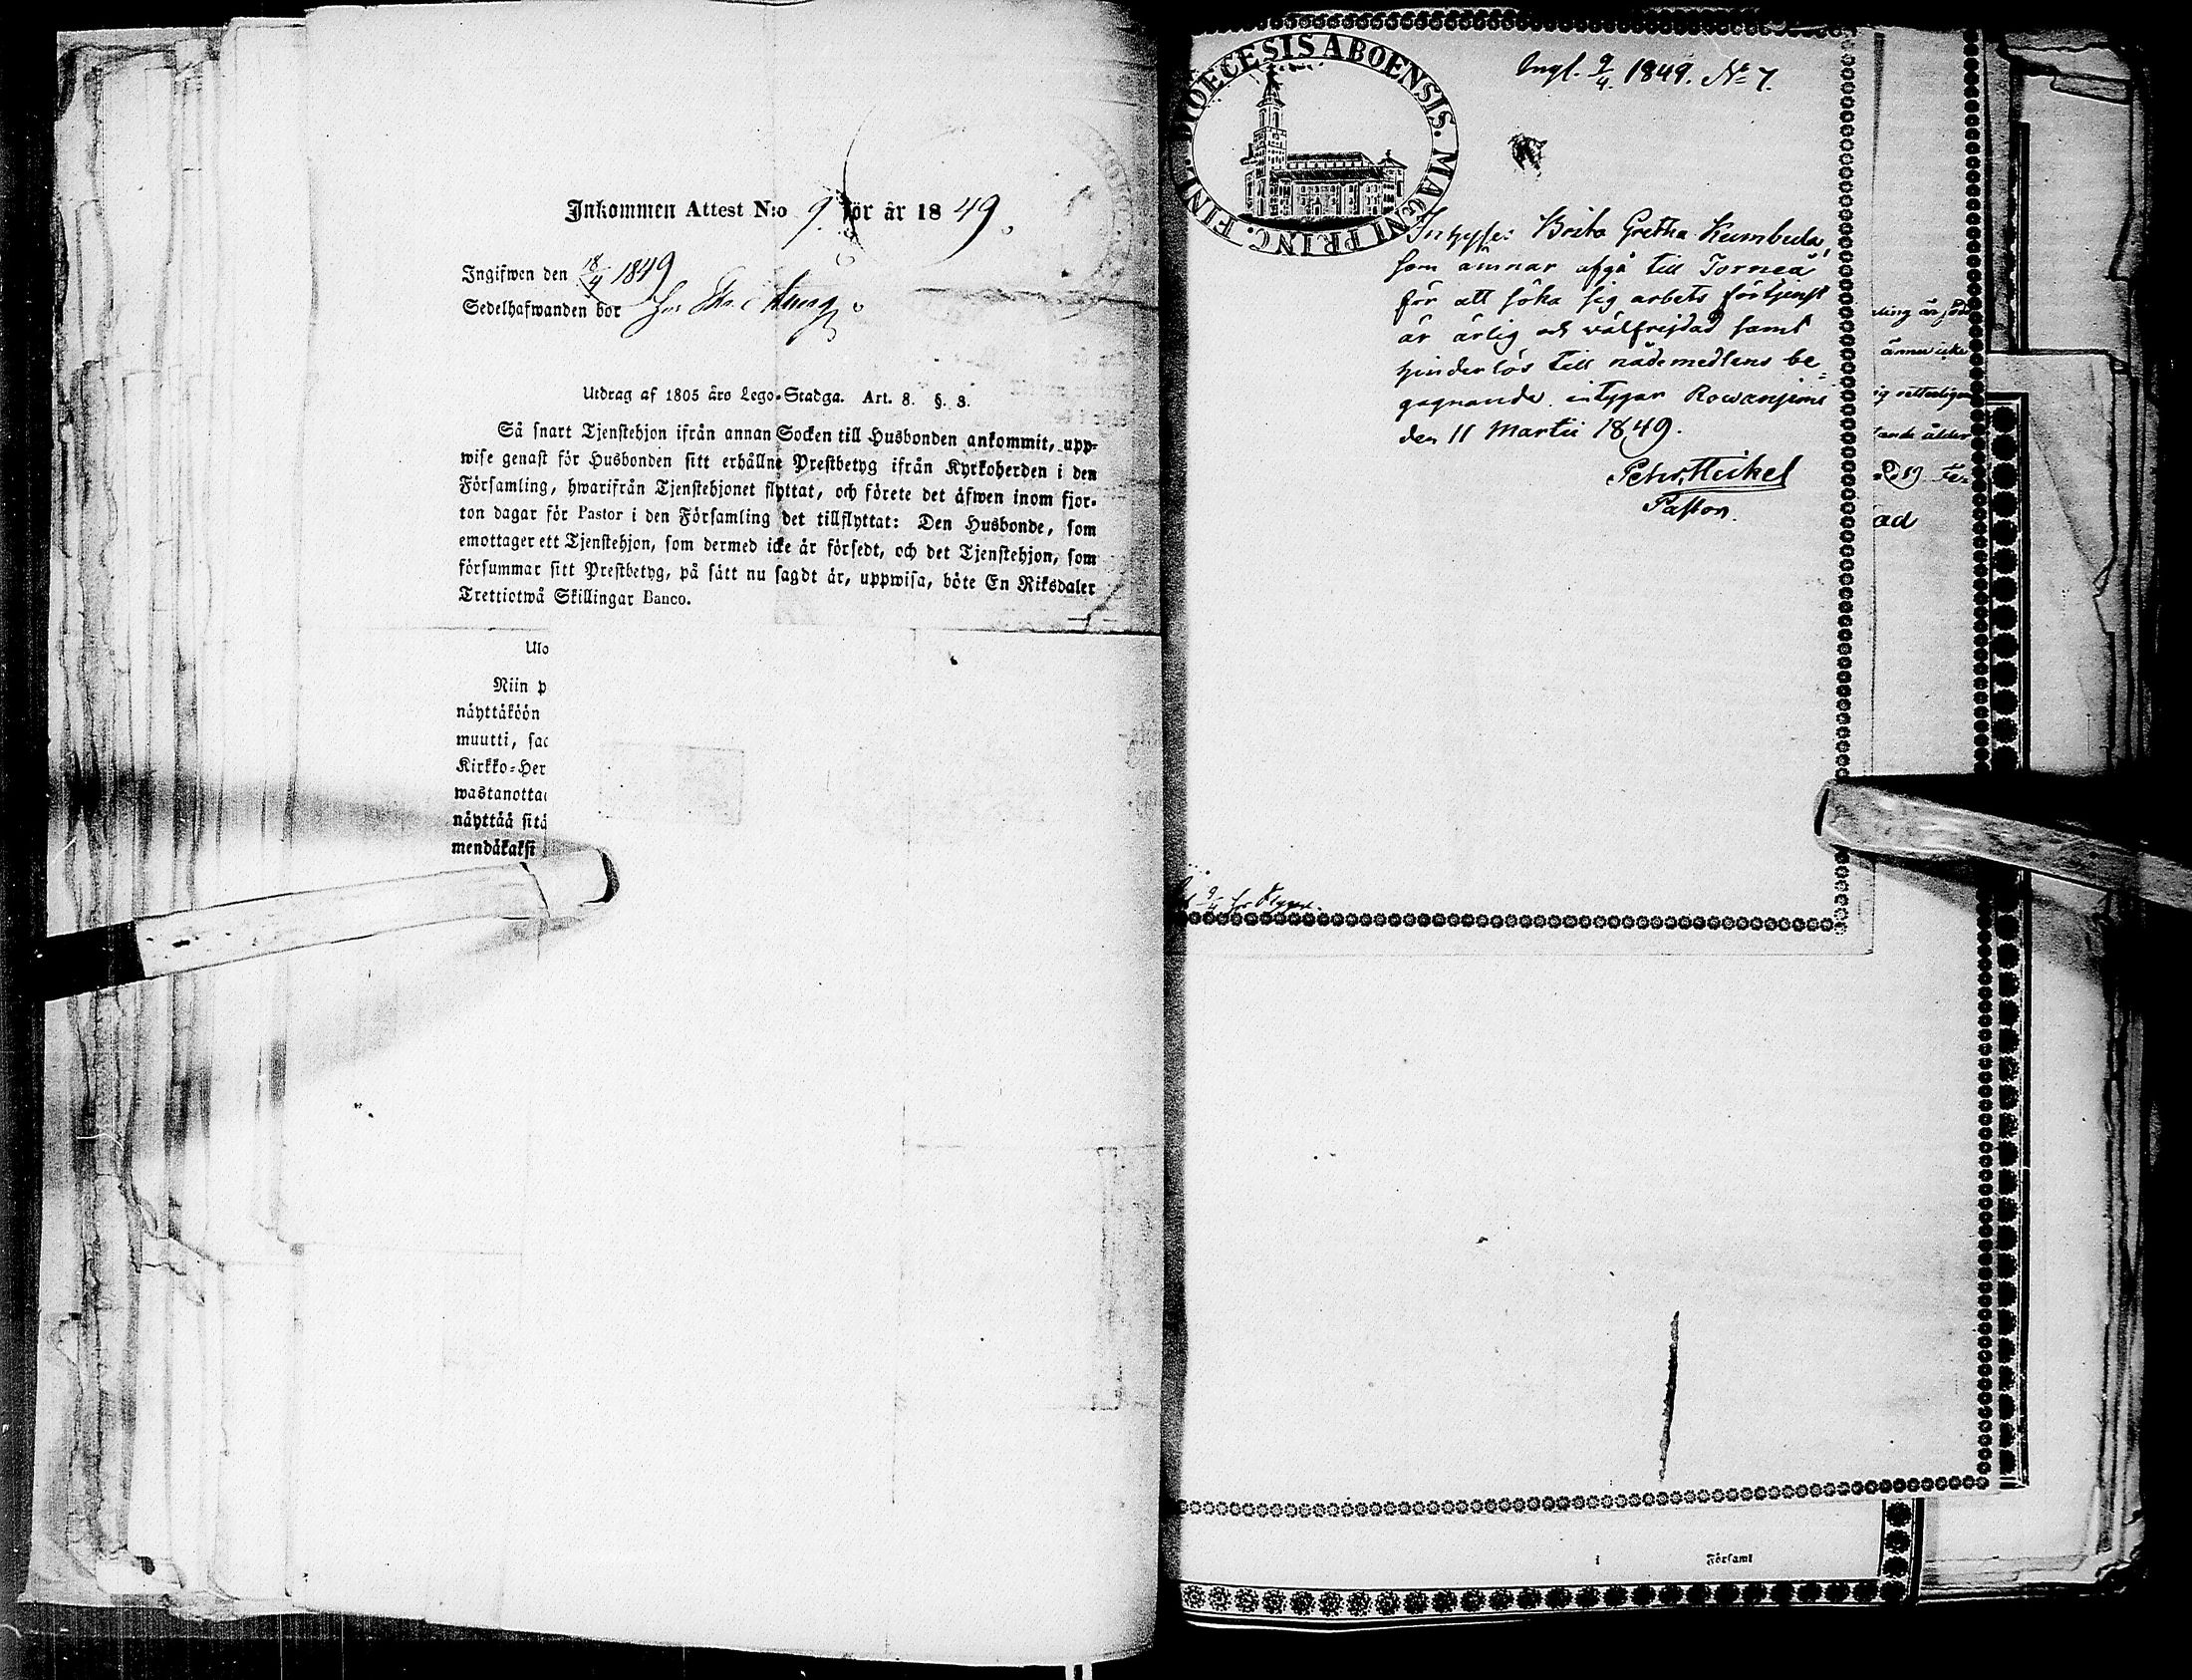 Inkommen Attest N:o 9. för år 1849.
Ingifwen den 18/4 1849
Sedelhafwanden bor hos
Utdrag af 1805 års Lego-Stadga. Art. 8. §. 8.
Så snart Tjenstehjon ifrån annan Socken till Husbonden ankommit, upp-
wise genast för Husbonden sitt erhållne Prestbetyg ifrån Kyrkoherden i den
Församling, hwarifrån Tjenstehjonet flyttat, och förete det äfwen inom fjor-
ton dagar för Pastor i den Församling det tillflyttat: Den Husbonde, som
emottager ett Tjenstehjon, som dermed icke är försedt, och det Tjenstehjon, som
försummar sitt Prestbetyg, på sätt nu sagdt är, uppwisa, böte En Riksdaler
Trettiotwå Skillingar Banco.
Ulo
Niin p
näyttäköön
muutti, sac
Kirkko-Her
wastanottac
näyttää sitä
mendäkaksi
DIOECESIS ABOENSIS. MAGNI PRINC. FINL.
Ingl. 9/4. 1849. No 7.
Brita Gretha Kumbula,
som ämnar afgå till Torneå
för att söka sig arbets förtjenst
är ärlig och wälfrejdad samt
hinderlös till nådemedlens be-
gagnande. intygar Rowanjemi
den 11 Martii 1849.
Petr. Heikel
Pastor.
9/4 hos
ling är
ännu icke
ad
i Församl